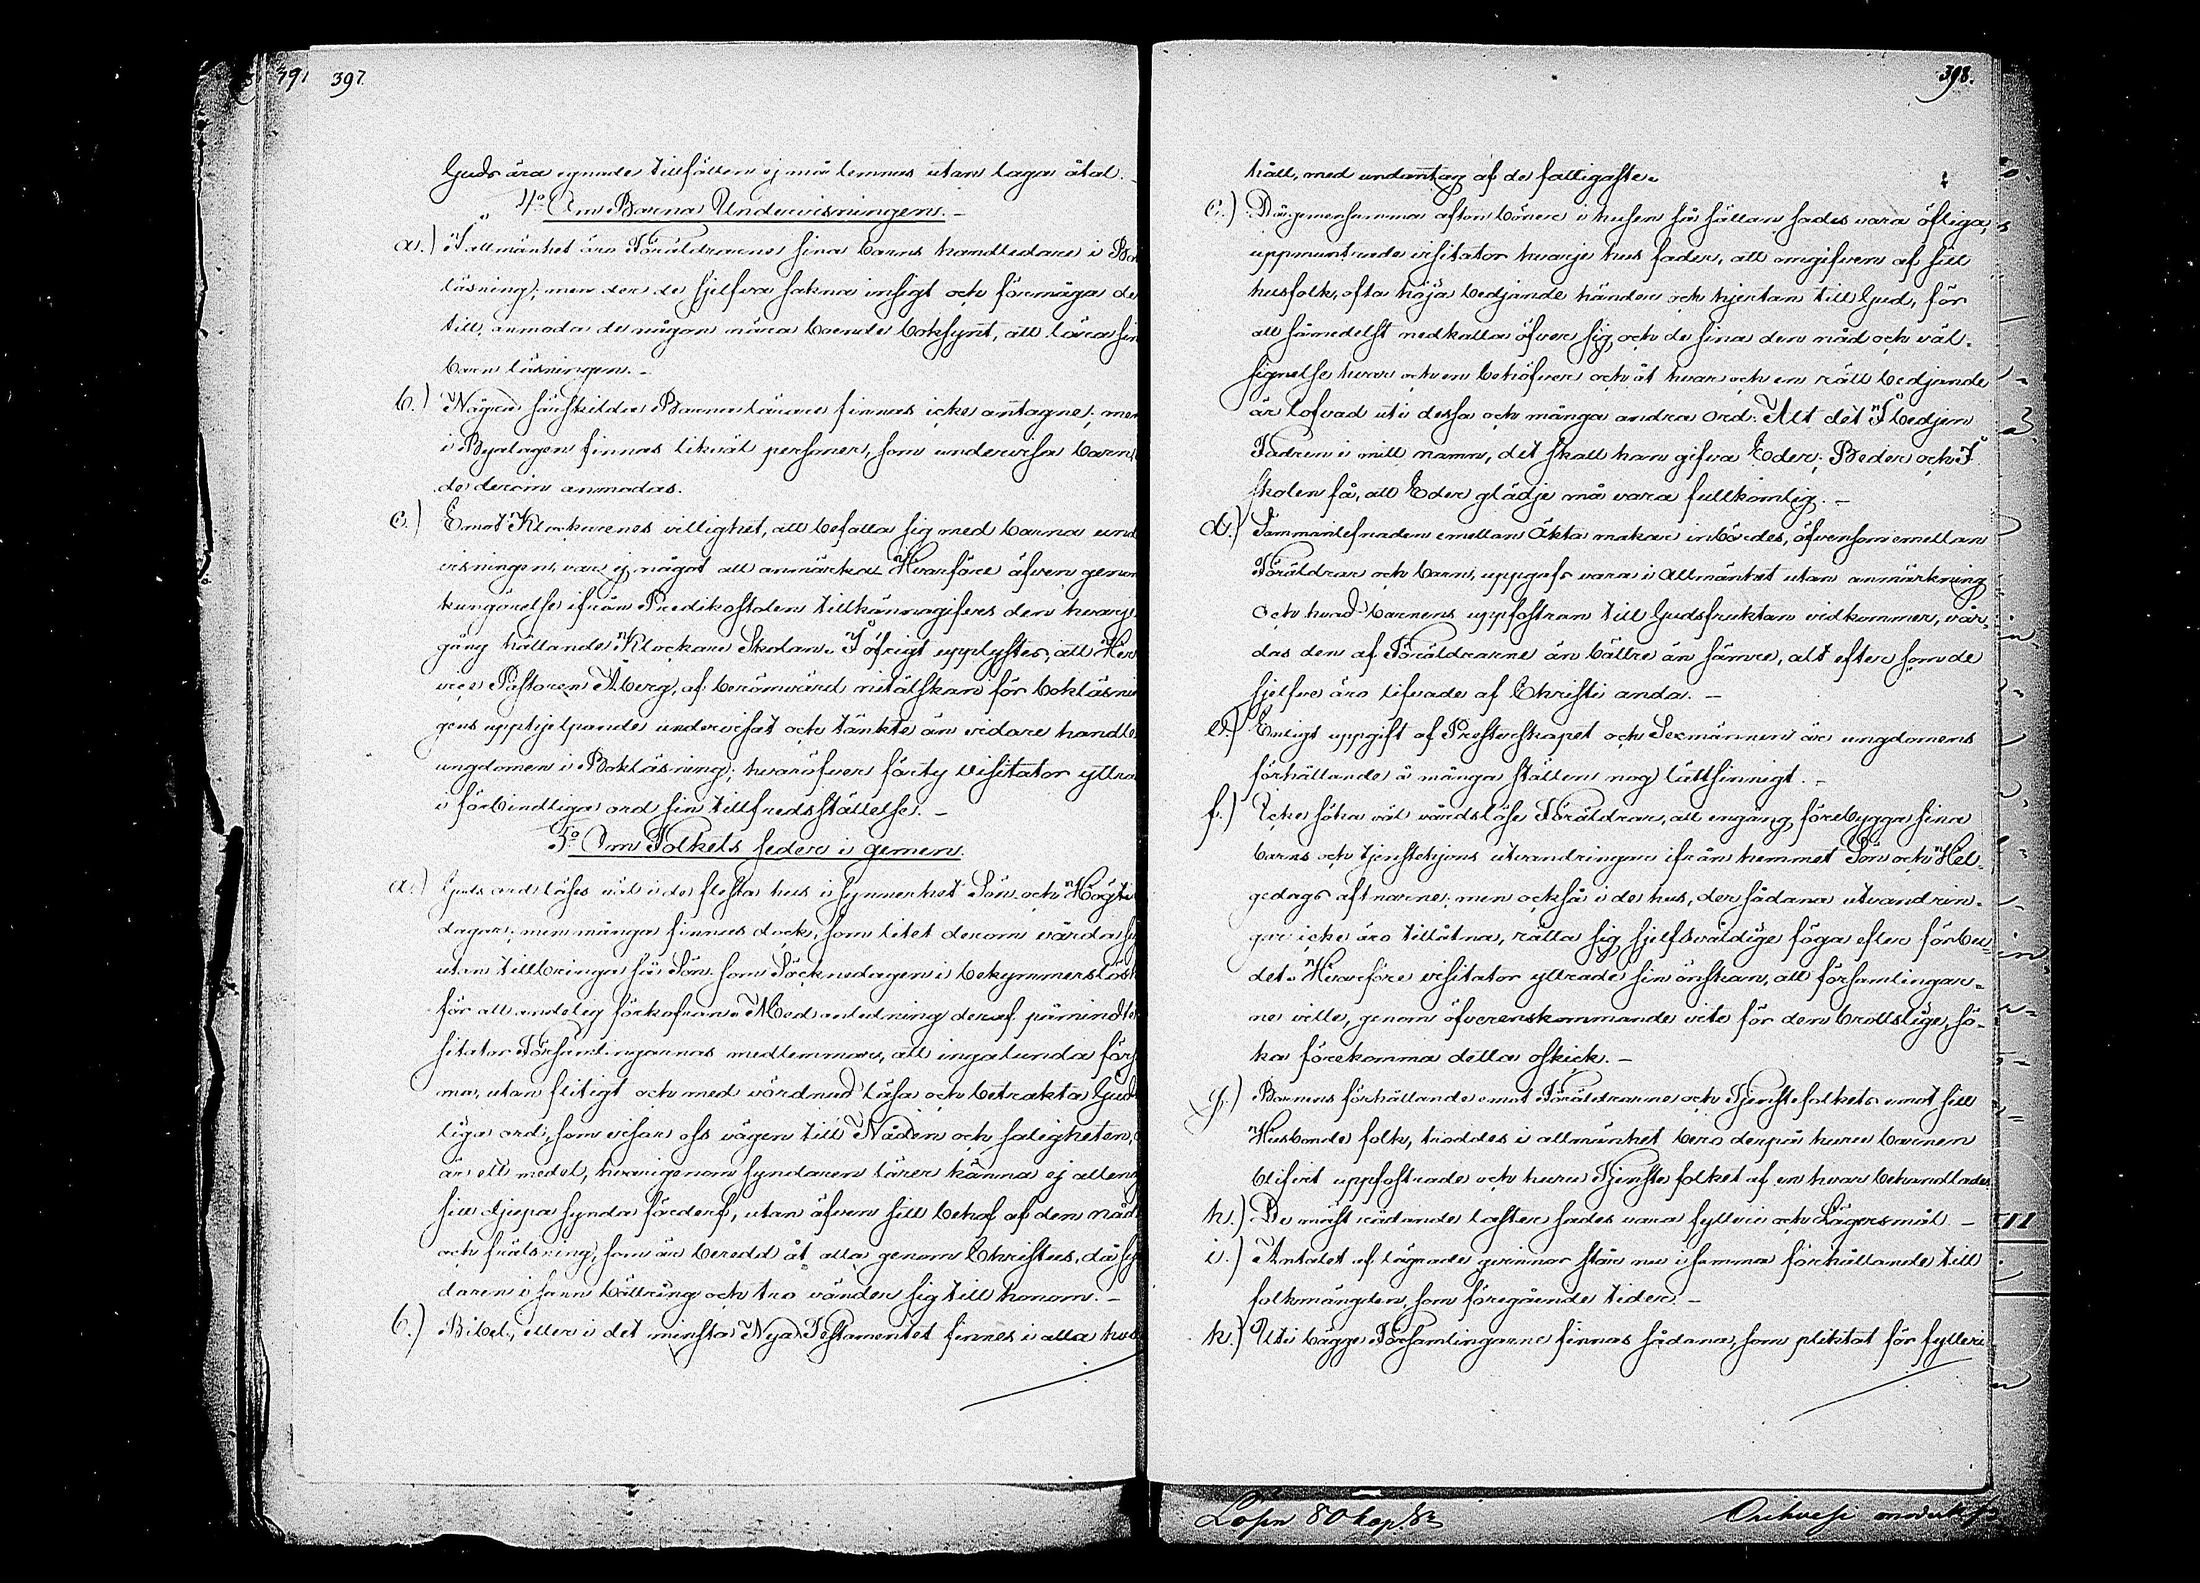 391 397.
Guds ära egnade tillfällen ej må lemnas utan laga åtal. -
4:o Om Barna Undervisningen. -
a.) I allmänhet äro Föräldrarne sina barns handledare i Bo
läsning; men der de sjelfva sakna insigt och förmåga de
till, anmoda de någon nära boende bokkynt, att lära sin
barn läsningen. -
b.) Någre särskildre Barnalärare finnas icke antagne; men
i Byalagen finnas likväl personer, som undervisa barn,
de derom anmodas.
c.) Emot Klockarenes villighet, att befatta sig med barna und
visningen, var ej något att anmärka. Hvarföre äfven genom
kungörelse ifrån Predikostolen tillkännagifves den hvarje
gång hållande Klockare Skolan. I öfrigt upplystes, att Her
vice Pastoren Åberg, af berömvärd nitälskan för bokläsnin
gens upphjelpande undervisat och tänkte än vidare handle
ungdomen i Bokläsning; hvaröfver förty Visitator yttra
i förbindliga ord sin tillfredsställelse. -
5:o Om Folkets seder i gemen.
a.) Guds ord läses väl i de flesta hus i synnerhet Sön- och Högti
dagar; men många finnas dock, som litet derom vårda si
utan tillbringa så Sön- som Söcknedagen i bekymmerslösh
för all andelig förkofran. Med anledning deraf påmindte
sitator Församlingarnas medlemmar, att ingalunda förs
ma, utan flitigt och med vördnad läsa och betrakta Gud
liga ord, som visar oss vägen till Nåden och saligheten,
är ett medel, hvarigenom syndaren lärer känna ej allena
sitt djupa synda förderf, utan äfven sitt behof af den nåd
och frälsning, som är beredd åt alla genom Christus, då sy
daren i sann bättring och tro vänder sig till honom. -
b.) Bibel, eller i det minsta Nya Testamentet finnes i alla hus
398.
håll, med undantag af de fattigaste.
c.) Då gemensamma aftonböner i husen så sällan sades vara öfliga,
uppmuntrade visitator hvarje hus fader, att omgifven af sitt
husfolk, ofta höja bedjande händer och hjertan till Gud, för
att såmedelst nedkalla öfver sig och de sina den nåd och väl-
signelse hvar och en behöfver och åt hvar och en rätt bedjande
är lofvad uti dessa och många andra ord: Alt det I bedjen
Fadren i mitt namn, det skall han gifva Eder; Beder och I
skolen få, att Eder glädje må vara fullkomlig. -
d.) Sammanlefnaden emellan Äkta makar inbördes, äfvensom emellan
Föräldrar och barn, uppgafs vara i Allmänhet utan anmärkning
Och hvad barnens uppfostran till Gudsfruktan vidkommer, vår-
das den af Föräldrarne än bättre än sämre, alt efter som de
sjelfve äro lifvade af Christi anda. -
e.) Enligt uppgift af Presterskapet och Sexmännen är ungdomens
förhållande å många ställen nog lättsinnigt. -
f.) Icke söka väl vårdslöse Föräldrar, att engång förebygga sina
barns och tjenstehjons utvandringar ifrån hemmet Sön och Hel-
gedags aftnarne; men också i de hus, der sådana utvandrin-
gar icke äro tillåtna, rätta sig sjelfsvåldige föga efter förbu-
det. Hvarföre visitator yttrade sin önskan, att församlingar-
ne ville, genom öfverenskommande vite för den brottslige, sö-
ka förekomma detta oskick. -
g.) Barnens förhållande emot Föräldrarne och Tjenstefolkets emot sitt
Husbonde folk, troddes i allmänhet bero derpå huru barnen
blifvit uppfostrade och huru Tjenste folket af en hvar behandlades
h.) De mäst rådande laster sades vara fylleri och Lägersmål -
i.) Antalet af lägrade qvinnor står nu i samma förhållande till
folkmängden, som föregående tider. -
k.) Uti bägge Församlingarne finnas sådana, som pliktat för fylleri
Lösn 80 kop. Sr